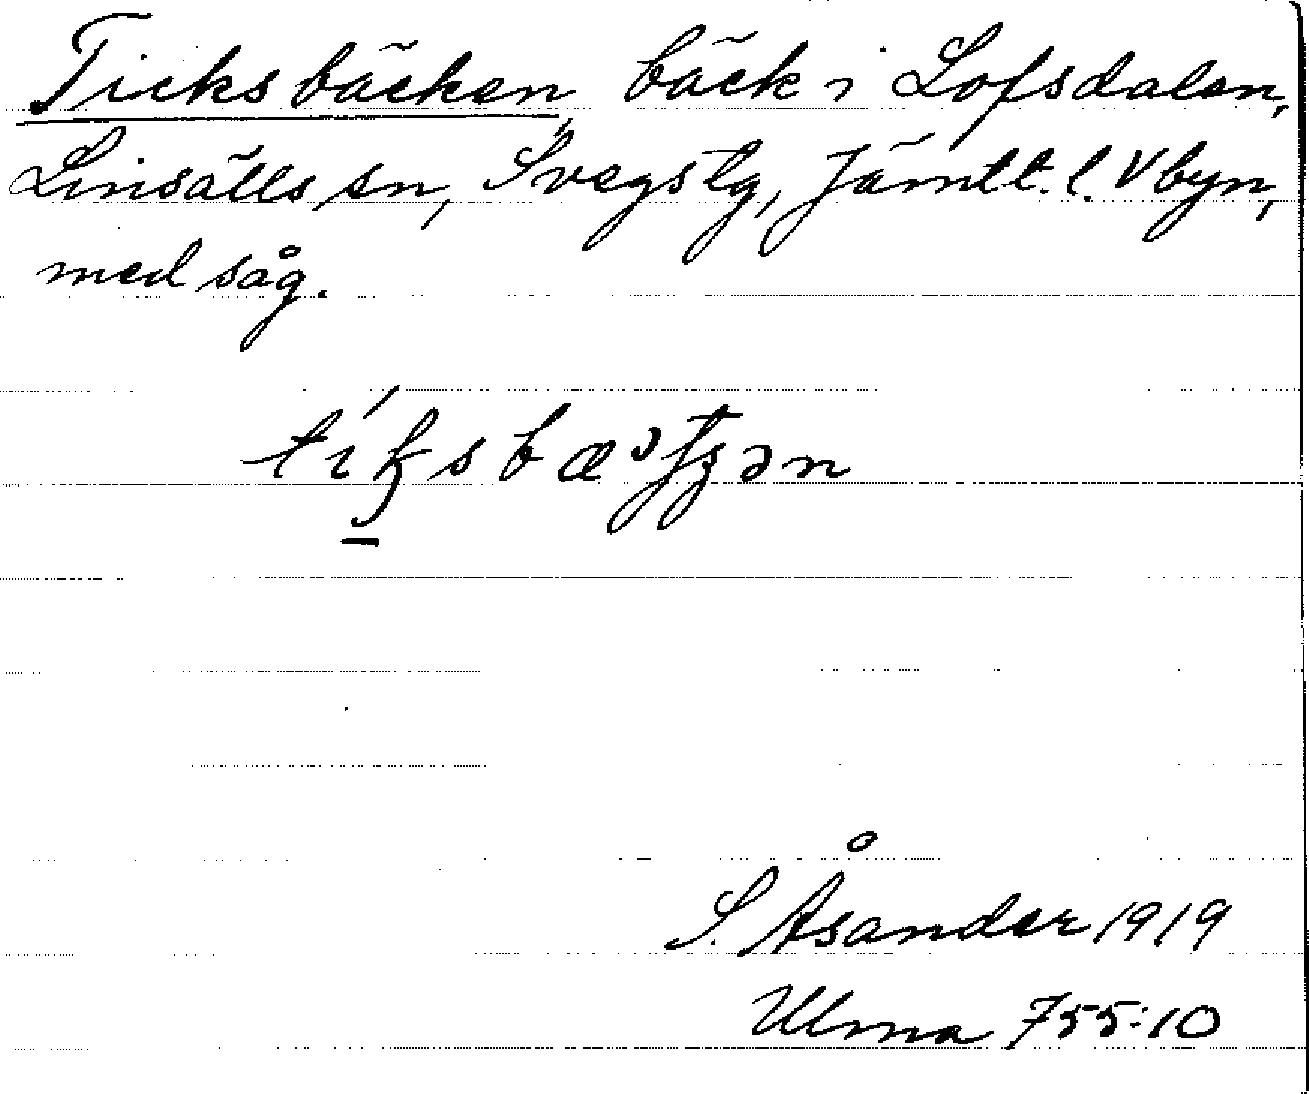 Ticksbäcken, bäck i Lofsdalen,
Linsälls sn, Svegs tg, Jämtl. l. V byn,
med såg.
S. Åsander 1919
Ulma 755:10